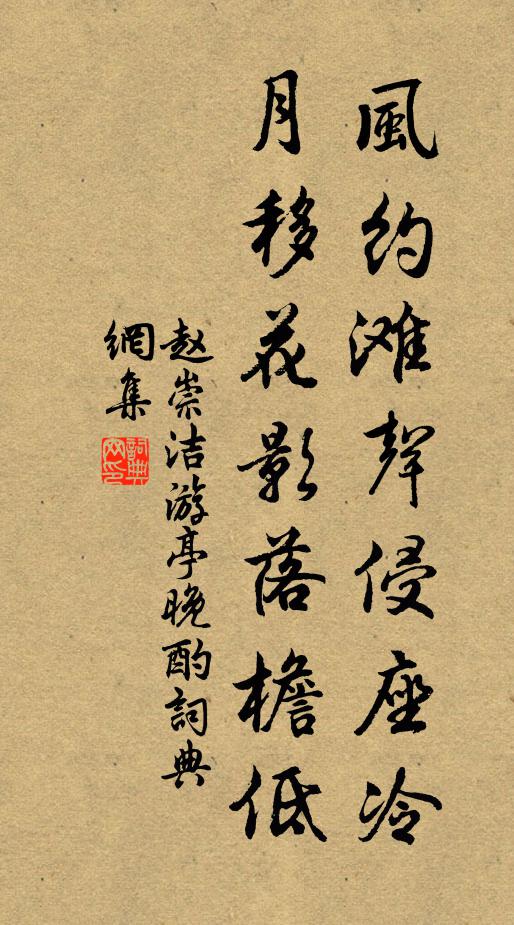 風約滩聲侵座冷
月移花影落檐低
赵崇洁游亭晚酌詞典
網集
詞典
网印